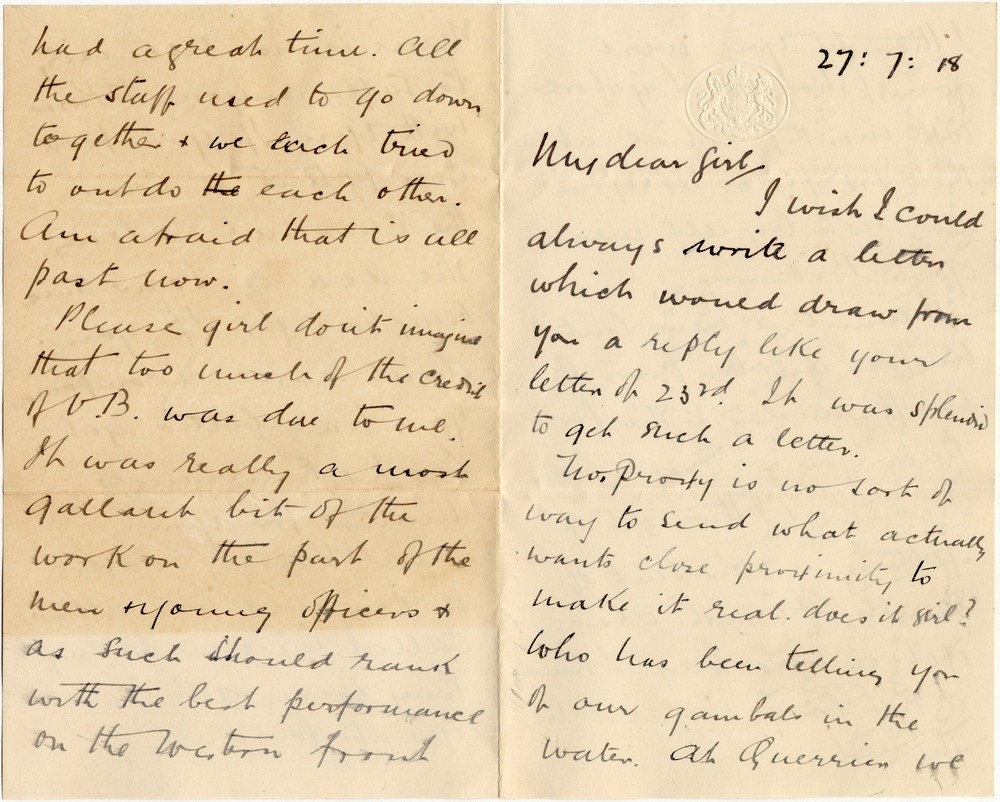 27: 7: 18
My dear girl,
I wish I could
always write a letter
which would draw from
you a reply like your
letter of 23rd. It was splendid
to get such a letter.
No. Proxy is no sort of
way to send what actually
wants close proximity to
make it real. does it girl?
Who has been telling you
of our gambols in the
water. At Querrieu we
had a great time. All
the staff used to go down
together + we each tried
to outdo the each other.
Am afraid that is all
past now.
Please girl don't imagine
that too much of the credit
of V.B. was due to me.
It was really a most
gallant bit of the
work on the part of the
men + young officers +
as such should rank
with the best performance
on the Western front